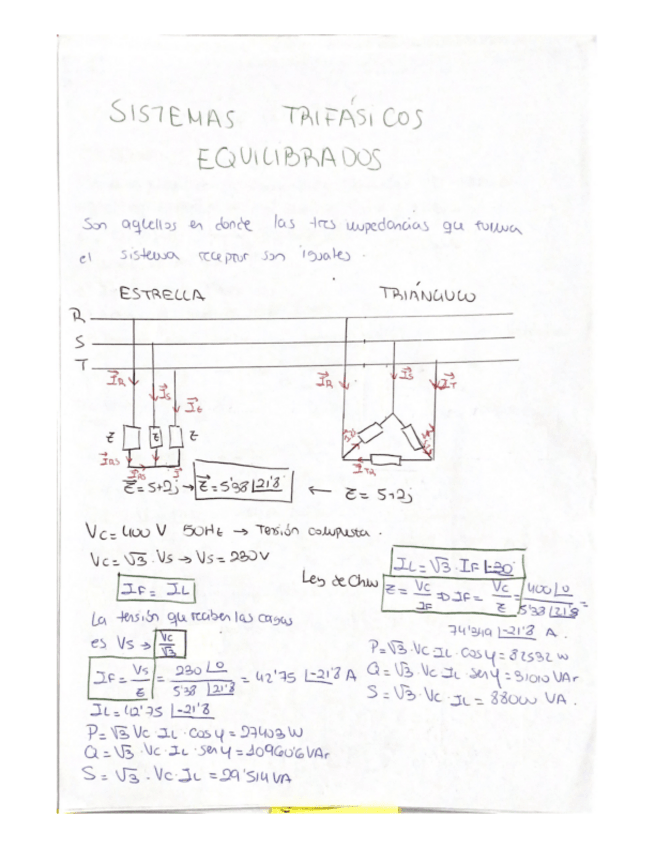 SISTEMAS TRIFÁSICOS
EQUILIBRADOS
Son aquellos en donde las tres impedancias que forman
el sistema receptor son iguales.
ESTRELLA
TRIÁNGULO
R
S
T
IR IS It
IR IS IT
Z Z Z
IRS
ITR
Z = 5+2j → Z = 5'38 ∠21'8 ← Z = 5+2j
Vc = 400 V 50Hz → Tensión compuesta.
Vc = √3 · Vs → Vs = 230V
IF = IL
La tensión que reciben las cargas
es Vs → Vc/√3
IF = Vs/Z = 230∠0 / 5'38∠21'8 = 42'75 ∠-21'8 A
IL = 42'75 ∠-21'8
P = √3 Vc · IL · cos φ = 27403 W
Q = √3 · Vc · IL · sen φ = 10960'6 VAr
S = √3 · Vc · IL = 29'514 VA
IL = √3 · IF ∠-30
Ley de Ohm
Z = Vc/IF ⇒ IF = Vc/Z = 400∠0 / 5'38∠21'8 =
74'349 ∠-21'8 A.
P = √3 · Vc IL · cos φ = 82532 W
Q = √3 · Vc IL · sen φ = 31010 VAr
S = √3 · Vc · IL = VA.